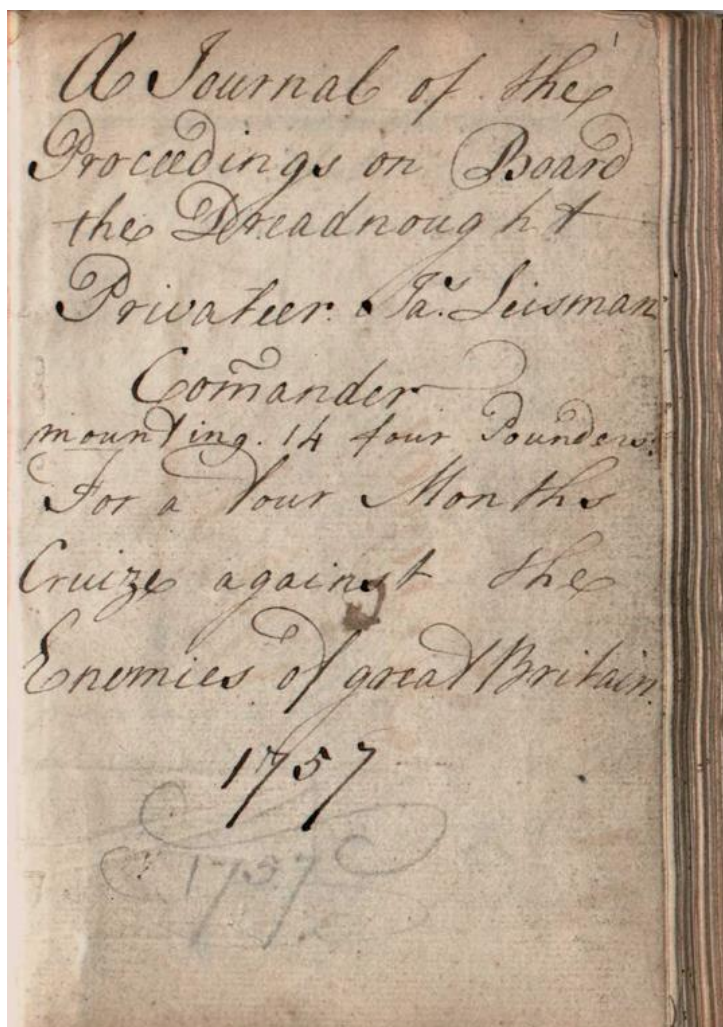 1
A Journal of the
Proceedings on Board
the Dreadnought
Privateer. Jaˢ. Leisman
Com̃ander
mounting. 14 four Pounders.
For a four Months
Cruize against the
Enemies of great Britain.
1757
1757